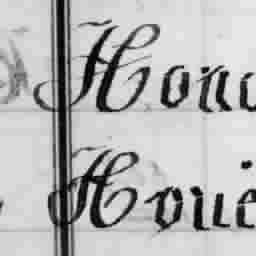 Hono
Houe